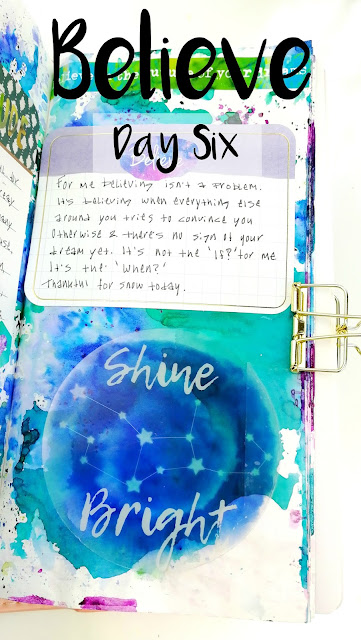 Believe
of your dreams
Day Six
For me believing isn't a problem.
It's believing when everything else
around you tries to convince you
otherwise & there's no sign of your
dream yet. It's not the 'If?' for me
It's the 'When?'
Thankful for snow today.
Shine
Bright